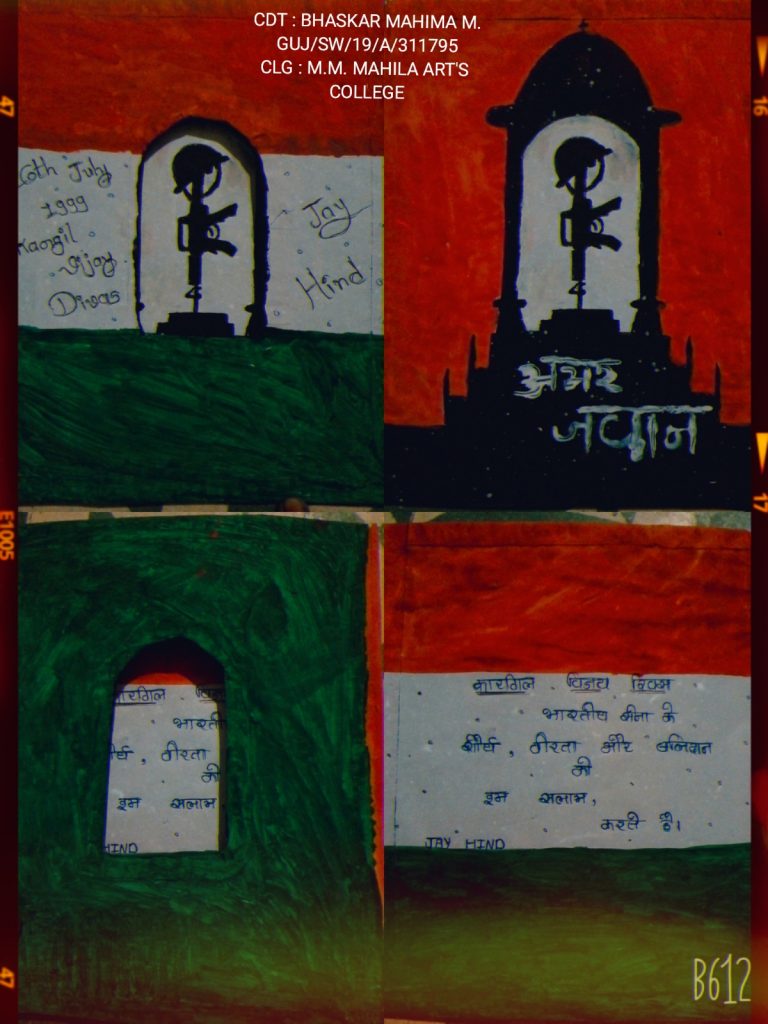 CDT : BHASKAR MAHIMA M.
GUJ/SW/19/A/311795
CLG : M.M. MAHILA ART'S
COLLEGE
6th July
1999
Kargil
Vijay
Divas
Jay
Hind
अमर
जवान
कारगिल
भारती
र्य , वीरता
को
हम सलाम
HIND
कारगिल विजय दिवस
भारतीय सेना के
शौर्य , वीरता और बलिदान
को
हम सलाम,
करते है।
JAY HIND
47
16
E1005
17
47
B612